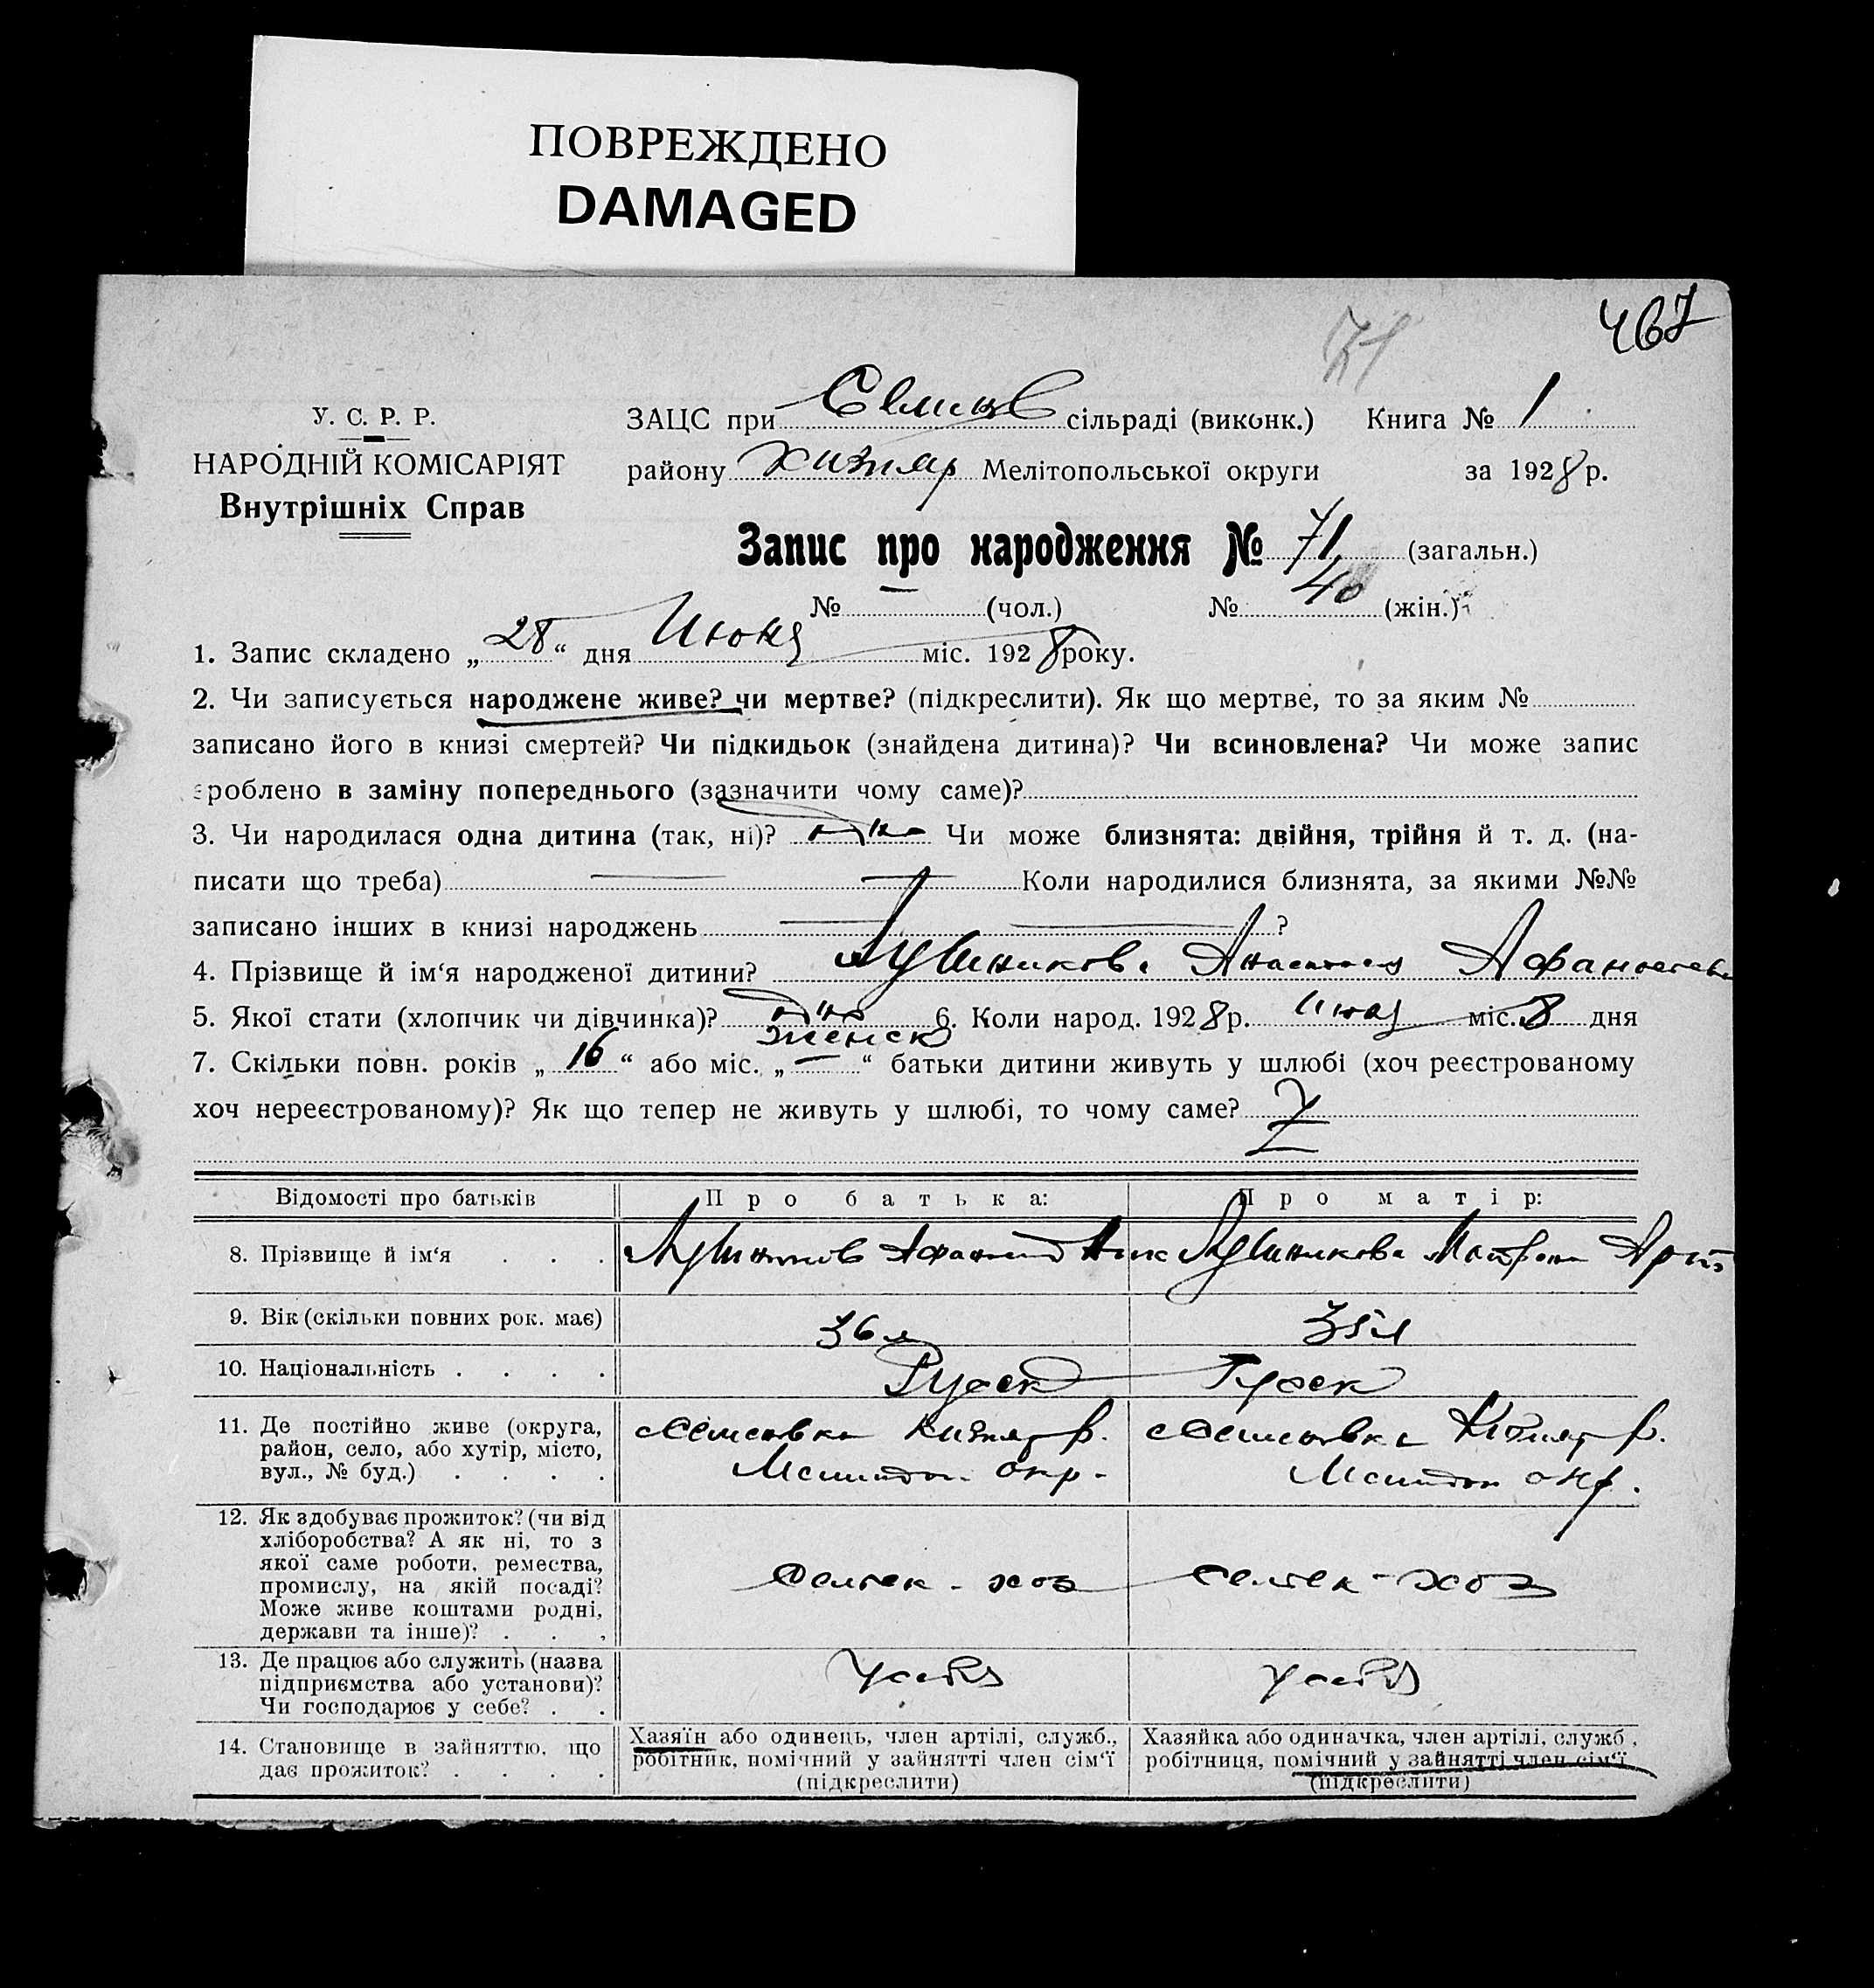 ПОВРЕЖДЕНО
DAMAGED
467
71
У. С. Р. Р.
НАРОДНІЙ КОМІСАРІЯТ
Внутрішніх Справ
ЗАЦС при сільраді (виконк.) Книга № 1
району Мелітопольської округи за 1928 р.
Запис про народження № 71 (загальн.)
№ — (чол.) № 40 (жін.)
1. Запис складено „28“ дня Июня міс. 1928 року.
2. Чи записується народжене живе? чи мертве? (підкреслити). Як що мертве, то за яким №
записано його в книзі смертей? Чи підкидьок (знайдена дитина)? Чи всиновлена? Чи може запис
зроблено в заміну попереднього (зазначити чому саме)?
3. Чи народилася одна дитина (так, ні)? Чи може близнята: двійня, трійня й т. д. (на-
писати що треба) — — Коли народилися близнята, за якими №№
записано інших в книзі народжень — — ?
4. Прізвище й ім‘я народженої дитини? Анастасия
5. Якої стати (хлопчик чи дівчинка)? женск 6. Коли народ. 1928 р. міс. 8 дня
7. Скільки повн. років „16“ або міс. „—“ батьки дитини живуть у шлюбі (хоч реєстрованому
хоч нереєстрованому)? Як що тепер не живуть у шлюбі, то чому саме?
Відомості про батьків Про батька: Про матір:
8. Прізвище й ім‘я . . .
9. Вік (скільки повних рок. має) 36 л 35 л
10. Національність . . . . Руск Руск
11. Де постійно живе (округа,
район, село, або хутір, місто,
вул., № буд.) . . . .
р. р.
окр. окр.
12. Як здобуває прожиток? (чи від
хліборобства? А як ні, то з
якої саме роботи, ремества,
промислу, на якій посаді?
Може живе коштами родні,
держави та інше)? . . .
хоз хоз
13. Де працює або служить (назва
підприємства або установи)?
Чи господарює у себе? . .
у себя у себя
14. Становище в зайняттю, що
дає прожиток? . . . .
Хазяїн або одинець, член артілі, служб.,
робітник, помічний у зайнятті член сім‘ї
(підкреслити)
Хазяйка або одиначка, член артілі, служб.,
робітниця, помічний у зайнятті член сім‘ї
(підкреслити)